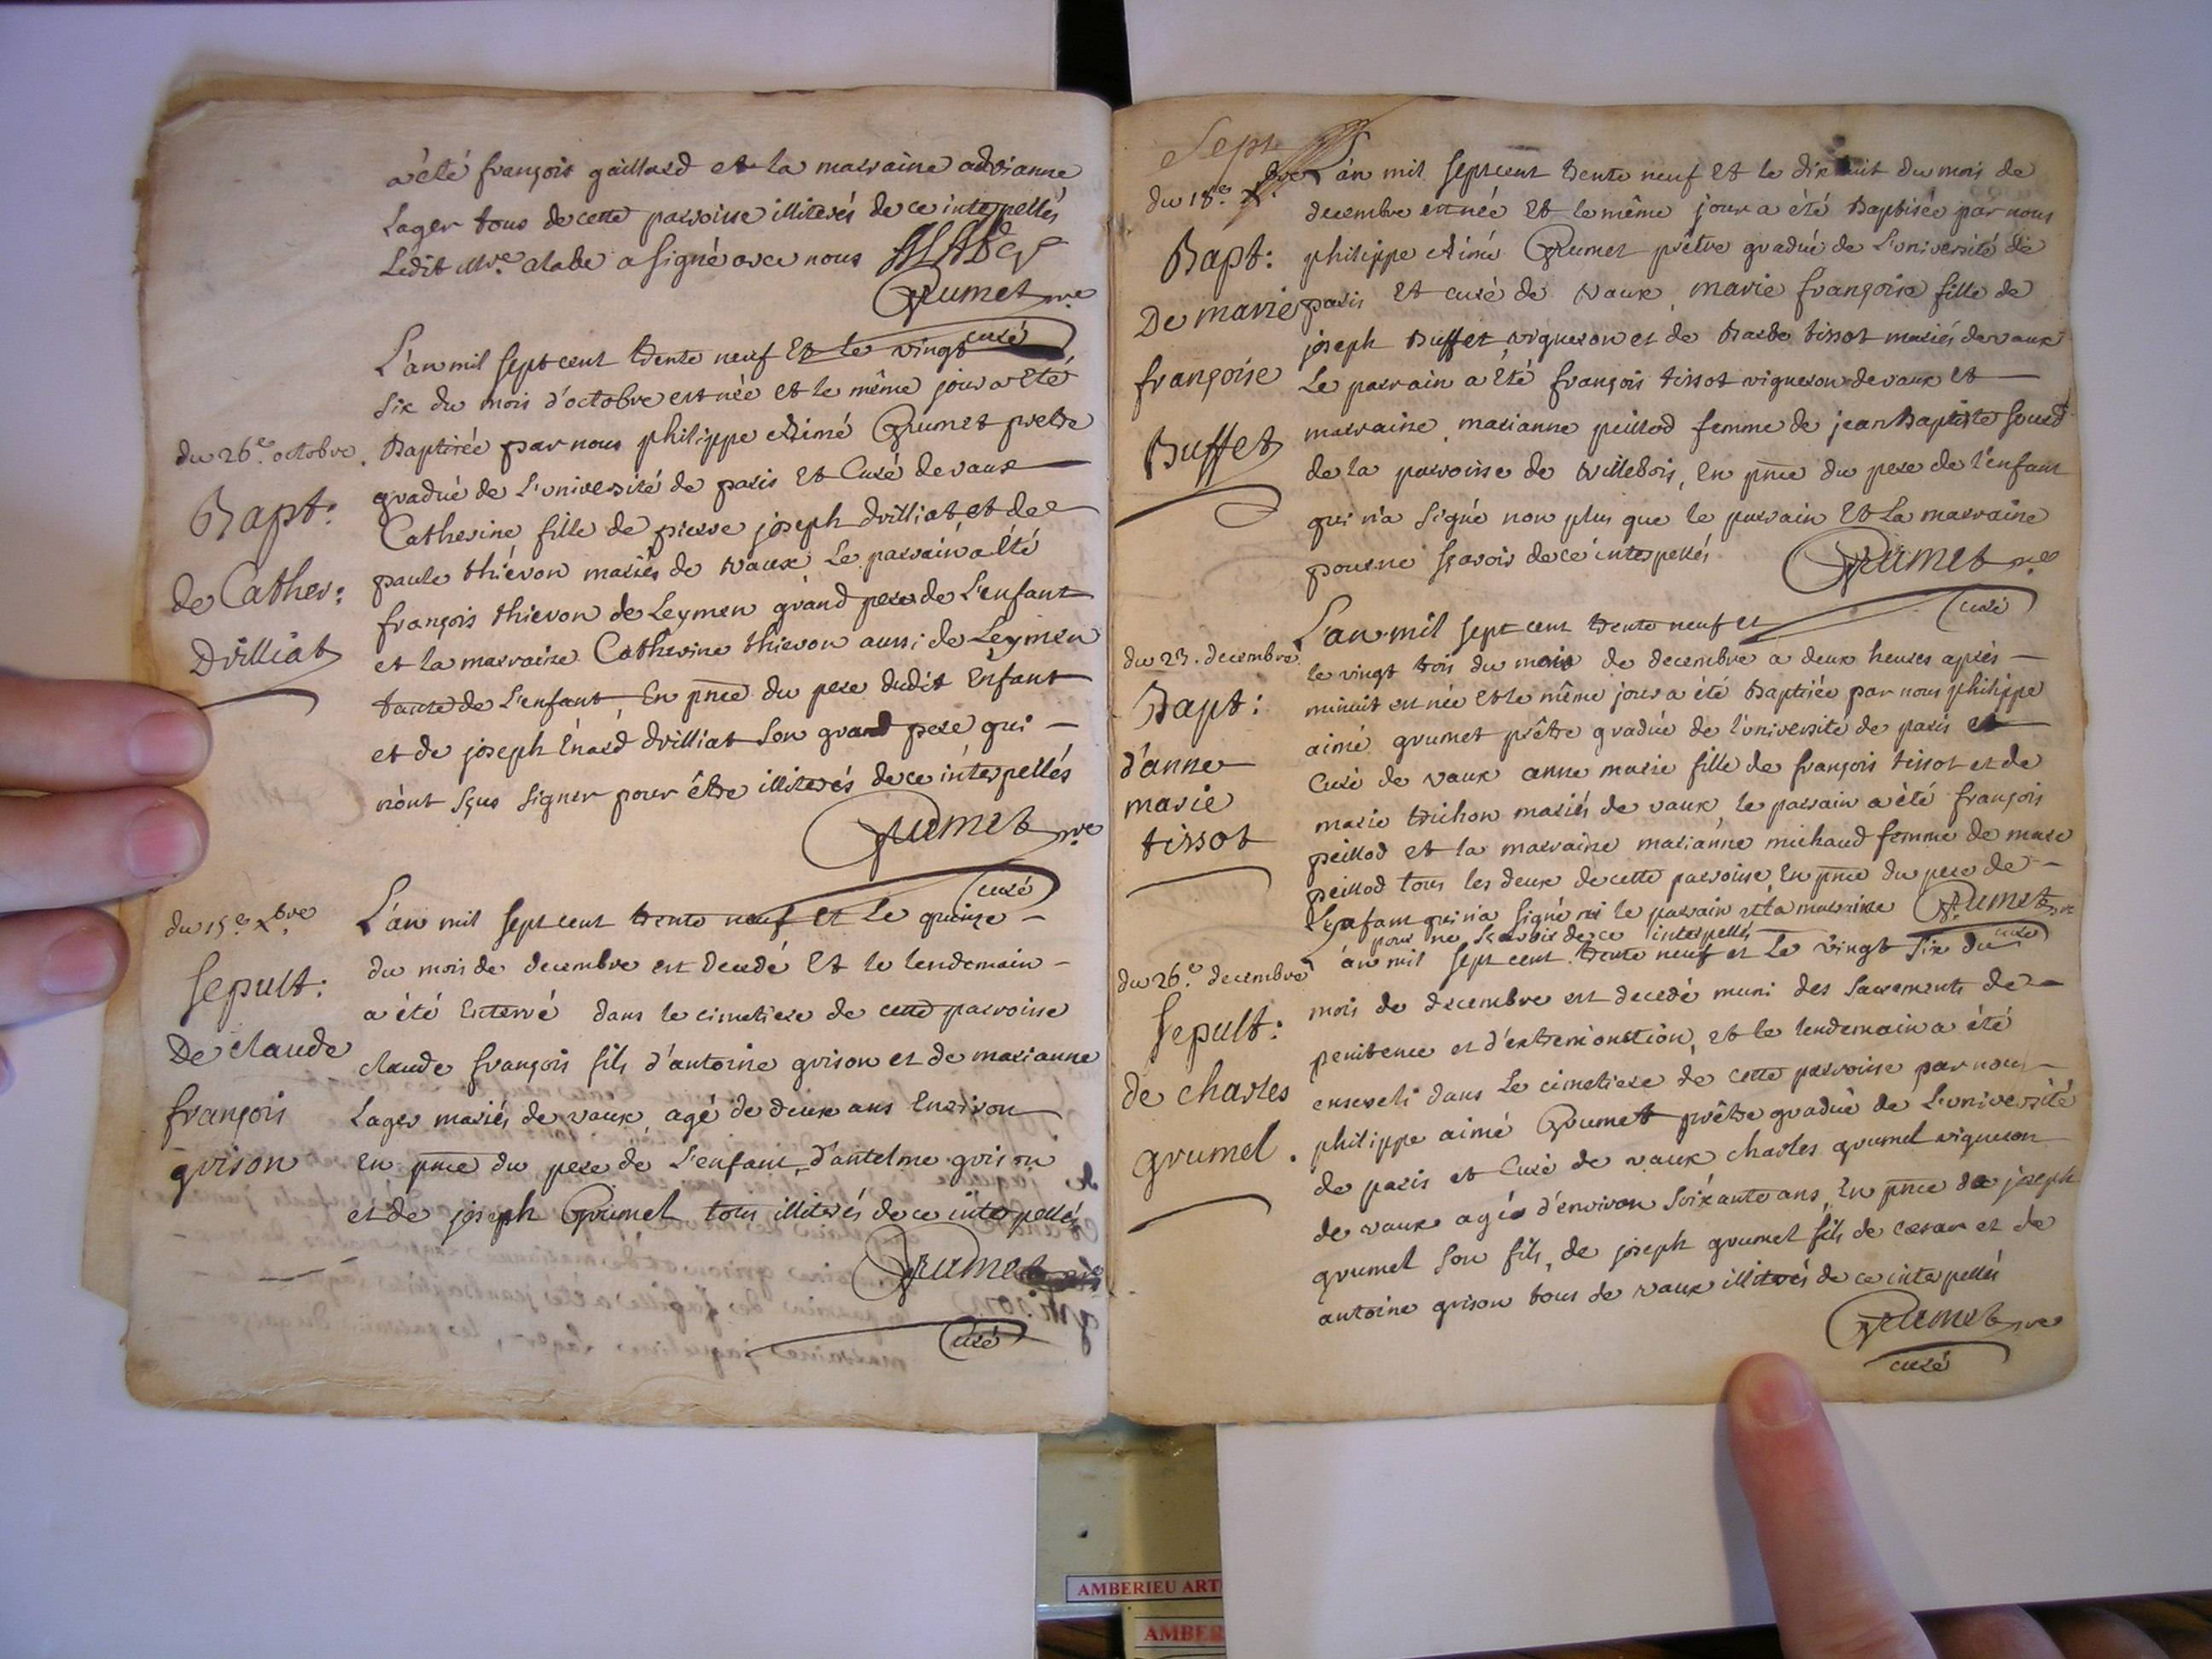 a été françois gaillard et la marraine adrianne
Lager tous de cette parroisse illiterés de ce interpellés
Ledit Mre alabe a signé avec nous
Grumet pre
curé
du 26e. octobre
Bapt:
de Cather:
Drilliat
L'an mil sept cent trente neuf Et le vingt
six du mois d'octobre est née et le même jour a été
Baptisée par nous philippe Aimé Grumet pretre
gradué de L'université de paris Et Curé de vaux
Catherine fille de pierre joseph drilliat et de
paule thiévon mariés de vaux, Le parrain a été
françois thievon de Leymen grand pere de L'enfant
et la marraine Catherine thievon aussi de Leymen
tante de L'enfant, En pnce du pere dudit Enfant
et de joseph Énard drilliat son grand pere qui
n'ont sçus signer pour être illiterés de ce interpellés
Grumet pre
curé
du 15e. xbre
Sepult:
De claude
françois
grison
L'an mil sept cent trente neuf et Le quinze
du mois de decembre est decedé Et le lendemain
a été Enterré dans le cimetiere de cette parroisse
claude françois fils d'antoine grison et de marianne
Lager mariés de vaux, agé de deux ans Environ
En pnce du pere de L'enfant, d'antelme grison
et de joseph Grumel tous illiterés de ce interpellés
Grumet
curé
Sept
du 18e. xbre
Bapt:
De marie
françoise
Buffet
L'an mil sept cent trente neuf Et le dix huit du mois de
decembre est née Et le même jour a été Baptisée par nous
philippe Aimé Grumet prêtre gradué de L'université de
paris Et curé de vaux, marie françoise fille de
joseph Buffet, vigneron et de Barbe tissot mariés de vaux
Le parrain a été françois tissot vigneron de vaux Et
marraine, marianne peillod femme de jean Baptiste sourd
de la parroisse de villebois, En pnce du pere de l'enfant
qui n'a signé non plus que le parrain Et La marraine
pour ne sçavoir de ce interpellés
Grumet pre
curé
du 23. decembre
Bapt:
d'anne
marie
tissot
L'an mil sept cent trente neuf et
le vingt trois du mois de decembre a deux heures après
minuit est née Et le même jour a été Baptisée par nous philippe
aimé grumet prêtre gradué de l'université de paris et
Curé de vaux anne marie fille de françois tissot et de
marie trichon mariés de vaux, le parrain a été françois
peillod et la marraine marianne michaud femme de marc
peillod tous les deux de cette parroisse En pnce du pere de
L'enfant qui n'a signé ni le parrain et la marraine
pour ne scavoir de ce interpellés
Grumet pre
curé
du 26e. decembre
Sepult:
de charles
grumel.
L'an mil sept cent trente neuf et Le vingt six du
mois de decembre est decedé muni des sacrements de
penitence et d'extremonction, et le lendemain a été
enseveli dans Le cimetiere de cette parroisse par nous
philippe aimé Grumet prêtre gradué de L'université
de paris et Curé de vaux charles grumel vigneron
de vaux agé d'environ soixante ans, En pnce de joseph
grumel son fils, de joseph grumel fils de cæsar et de
antoine grison tous de vaux illiterés de ce interpellés
Grumet pre
curé
AMBERIEU ART
AMBER